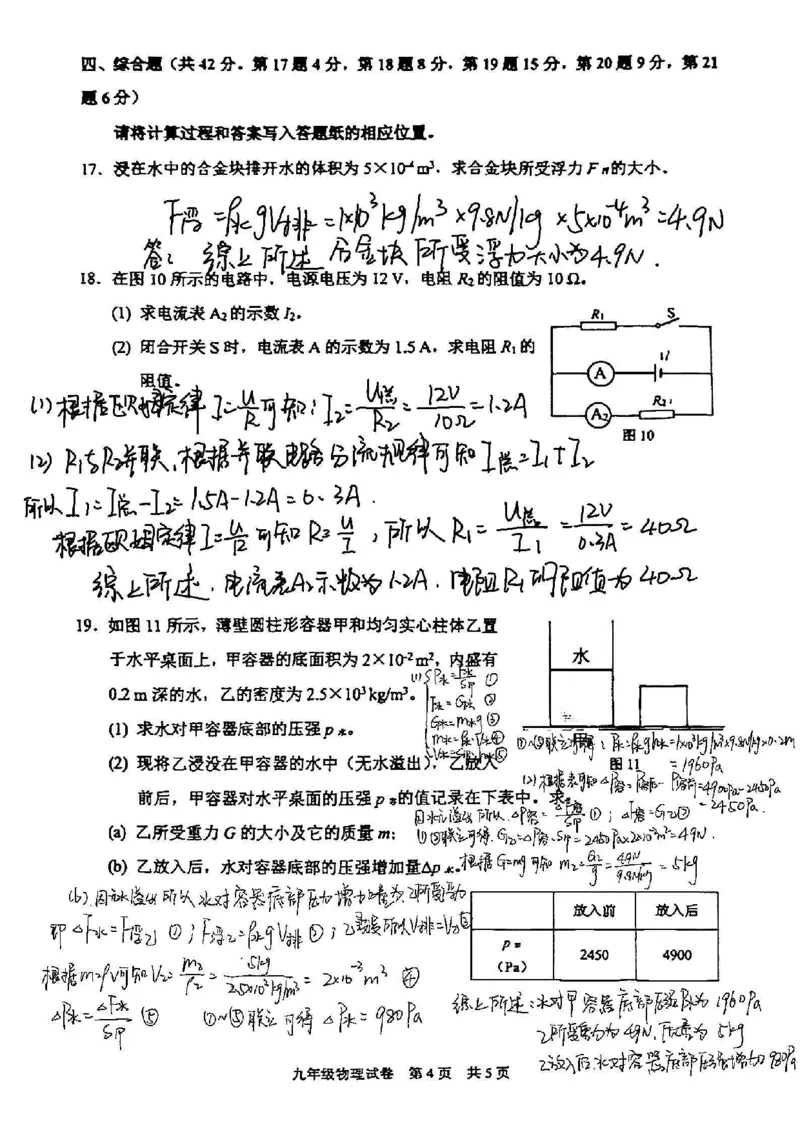 四、综合题（共42分。第17题4分，第18题8分，第19题15分，第20题9分，第21
题6分）
请将计算过程和答案写入答题纸的相应位置。
17．浸在水中的合金块排开水的体积为5×10⁻⁴m³，求合金块所受浮力F浮的大小。
F浮=ρ水gV排=1×10³kg/m³×9.8N/kg×5×10⁻⁴m³=4.9N
答：综上所述，合金块所受浮力大小为4.9N．
18．在图10所示的电路中，电源电压为12V，电阻R₂的阻值为10Ω。
(1) 求电流表A₂的示数I₂。
(2) 闭合开关S时，电流表A的示数为1.5A，求电阻R₁的
阻值。
R₁ S
A
A₂ R₂
图10
(1)根据欧姆定律I=U/R可知：I₂=U总/R₂=12V/10Ω=1.2A
(2) R₁与R₂并联，根据并联电路分流规律可知I总=I₁+I₂
所以I₁=I总-I₂=1.5A-1.2A=0.3A．
根据欧姆定律I=U/R可知R=U/I，所以R₁=U总/I₁=12V/0.3A=40Ω
综上所述，电流表A₂示数为1.2A，电阻R₁的阻值为40Ω
19．如图11所示，薄壁圆柱形容器甲和均匀实心柱体乙置
于水平桌面上，甲容器的底面积为2×10⁻²m²，内盛有
0.2m深的水，乙的密度为2.5×10³kg/m³。
水
(1) 求水对甲容器底部的压强p水。
(2) 现将乙浸没在甲容器的水中（无水溢出），乙放入
图11
前后，甲容器对水平桌面的压强p容的值记录在下表中。求：
(a) 乙所受重力G的大小及它的质量m；
(b) 乙放入后，水对容器底部的压强增加量Δp水。
(1) p水=F水/S甲 ①
F水=G水 ②
G水=m水g ③
m水=ρ水V水 ④
①~⑤联立可得：p水=ρ水gh水=1×10³kg/m³×9.8N/kg×0.2m
=1960Pa
(2)根据表可知Δp容=p容后-p容前=4900Pa-2450Pa
=2450Pa．
因水无溢出 所以Δp容=ΔF容/S甲 ①；ΔF容=G乙②
①②联立可得，G乙=Δp容·S甲=2450Pa×2×10⁻²m²=49N．
根据G=mg可知 m乙=G乙/g=49N/9.8N/kg=5kg
(b)．因无水溢出所以，水对容器底部压力增力量为乙所受浮力
即ΔF水=F浮乙 ①；F浮乙=ρ水gV排②；乙浸没所以V排=V乙③
根据m=ρV可知V乙=m乙/ρ乙=5kg/2.5×10³kg/m³=2×10⁻³m³ ④
Δp水=ΔF水/S甲 ⑤ ①~⑤联立可得Δp水=980Pa
放入前 放入后
p容（Pa） 2450 4900
综上所述：水对甲容器底部压强p水为1960Pa
乙所受重力为49N，质量为5kg
乙放入后，水对容器底部压强增加980Pa
九年级物理试卷 第4页 共5页